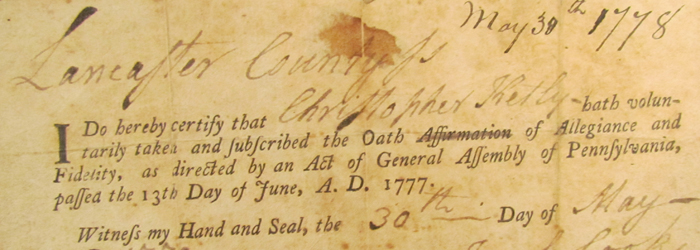 May 30th 1778
Lancaſter County ſs
I Do hereby certify that Christopher Kelly hath volun-
tarily taken and ſubſcribed the Oath Affirmation of Allegiance and
Fidelity, as directed by an Act of General Aſſembly of Pennſylvania,
paſſed the 13th Day of June, A. D. 1777.
Witneſs my Hand and Seal, the 30th Day of May